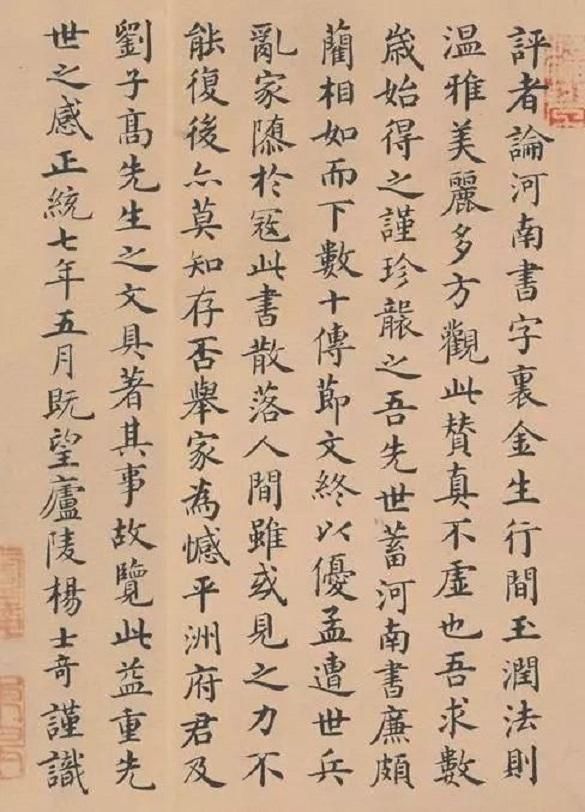 評者論河南書字裏金生行間玉潤法則
温雅美麗多方觀此賛真不虛也吾求數
歲始得之謹珍襲之吾先世蓄河南書廉頗
藺相如而下數十傳節文終以優孟遭世兵
亂家隊於寇此書散落人間雖或見之力不
能復後亦莫知存否舉家為憾平洲府君及
劉子髙先生之文具著其事故覽此益重先
世之感正統七年五月既望廬陵楊士奇謹識